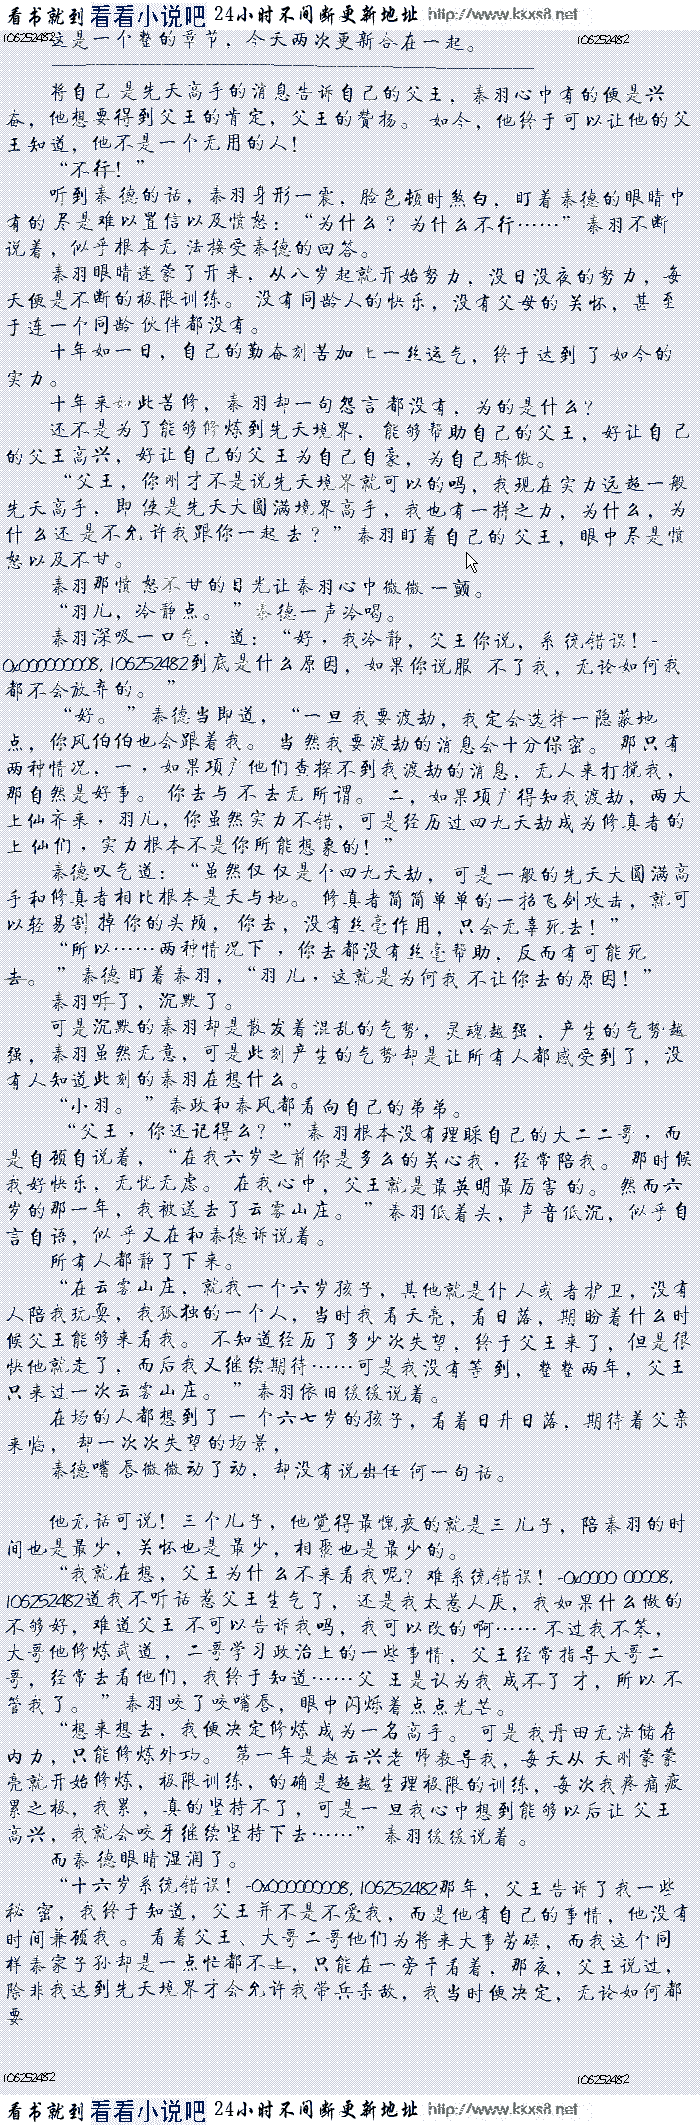 看书就到 看看小说吧 24小时不间断更新地址 http://www.kkxs8.net
106252482 106252482
这是一个整的章节，今天两次更新合在一起。
将自己是先天高手的消息告诉自己的父王，秦羽心中有的便是兴
奋，他想要得到父王的肯定，父王的赞扬。如今，他终于可以让他的父
王知道，他不是一个无用的人！
“不行！”
听到秦德的话，秦羽身形一震，脸色顿时煞白，盯着秦德的眼睛中
有的尽是难以置信以及愤怒：“为什么？为什么不行……”秦羽不断
说着，似乎根本无法接受秦德的回答。
秦羽眼睛迷蒙了开来，从八岁起就开始努力，没日没夜的努力，每
天便是不断的极限训练。没有同龄人的快乐，没有父母的关怀，甚至
于连一个同龄伙伴都没有。
十年如一日，自己的勤奋刻苦加上一丝运气，终于达到了如今的
实力。
十年来如此苦修，秦羽却一句怨言都没有，为的是什么？
还不是为了能够修炼到先天境界，能够帮助自己的父王，好让自己
的父王高兴，好让自己的父王为自己自豪，为自己骄傲。
“父王，你刚才不是说先天境界就可以的吗，我现在实力远超一般
先天高手，即使是先天大圆满境界高手，我也有一拼之力，为什么，为
什么还是不允许我跟你一起去？”秦羽盯着自己的父王，眼中尽是愤
怒以及不甘。
秦羽那愤怒不甘的目光让秦羽心中微微一颤。
“羽儿，冷静点。”秦德一声冷喝。
秦羽深吸一口气，道：“好，我冷静，父王你说，系统错误！-
0x000000008, 106252482到底是什么原因，如果你说服不了我，无论如何我
都不会放弃的。”
“好。”秦德当即道，“一旦我要渡劫，我定会选择一隐蔽地
点，你风伯伯也会跟着我。当然我要渡劫的消息会十分保密。那只有
两种情况，一，如果项广他们查探不到我渡劫的消息，无人来打搅我，
那自然是好事。你去与不去无所谓。二，如果项广得知我渡劫，两大
上仙齐来，羽儿，你虽然实力不错，可是经历过四九天劫成为修真者的
上仙们，实力根本不是你所能想象的！”
秦德叹气道：“虽然仅仅是个四九天劫，可是一般的先天大圆满高
手和修真者相比根本是天与地。修真者简简单单的一招飞剑攻击，就可
以轻易割掉你的头颅，你去，没有丝毫作用，只会无辜死去！”
“所以……两种情况下，你去都没有丝毫帮助，反而有可能死
去。”秦德盯着秦羽，“羽儿，这就是为何我不让你去的原因！”
秦羽听了，沉默了。
可是沉默的秦羽却是散发着混乱的气势，灵魂越强，产生的气势越
强，秦羽虽然无意，可是此刻产生的气势却是让所有人都感受到了，没
有人知道此刻的秦羽在想什么。
“小羽。”秦政和秦风都看向自己的弟弟。
“父王，你还记得么？”秦羽根本没有理睬自己的大二二哥，而
是自顾自说着，“在我六岁之前你是多么的关心我，经常陪我。那时候
我好快乐，无忧无虑。在我心中，父王就是最英明最厉害的。然而六
岁的那一年，我被送去了云雾山庄。”秦羽低着头，声音低沉，似乎自
言自语，似乎又在和秦德诉说着。
所有人都静了下来。
“在云雾山庄，就我一个六岁孩子，其他就是仆人或者护卫，没有
人陪我玩耍，我孤独的一个人，当时我看天亮，看日落，期盼着什么时
候父王能够来看我。不知道经历了多少次失望，终于父王来了，但是很
快他就走了，而后我又继续期待……可是我没有等到，整整两年，父王
只来过一次云雾山庄。”秦羽依旧缓缓说着。
在场的人都想到了一个六七岁的孩子，看着日升日落，期待着父亲
来临，却一次次失望的场景，
秦德嘴唇微微动了动，却没有说出任何一句话。
他无话可说！三个儿子，他觉得最愧疚的就是三儿子，陪秦羽的时
间也是最少，关怀也是最少，相聚也是最少的。
“我就在想，父王为什么不来看我呢？难系统错误！-0x0000 00008,
106252482道我不听话惹父王生气了，还是我太惹人厌，我如果什么做的
不够好，难道父王不可以告诉我吗，我可以改的啊……不过我不笨，
大哥他修炼武道，二哥学习政治上的一些事情，父王经常指导大哥二
哥，经常去看他们，我终于知道……父王是认为我成不了才，所以不
管我了。”秦羽咬了咬嘴唇，眼中闪烁着点点光芒。
“想来想去，我便决定修炼成为一名高手。可是我丹田无法储存
内力，只能修炼外功。第一年是赵云兴老师教导我，每天从天刚蒙蒙
亮就开始修炼，极限训练，的确是超越生理极限的训练，每次我疼痛疲
累之极，我累，真的坚持不了，可是一旦我心中想到能够以后让父王
高兴，我就会咬牙继续坚持下去……”秦羽缓缓说着。
而秦德眼睛湿润了。
“十六岁系统错误！-0x000000008, 106252482那年，父王告诉了我一些
秘密，我终于知道，父王并不是不爱我，而是他有自己的事情，他没有
时间兼顾我。看着父王、大哥二哥他们为将来大事劳碌，而我这个同
样秦家子孙却是一点忙都不上，只能在一旁干看着，那夜，父王说过，
除非我达到先天境界才会允许我带兵杀敌，我当时便决定，无论如何都
要
106252482 106252482
看书就到 看看小说吧 24小时不间断更新地址 http://www.kkxs8.net